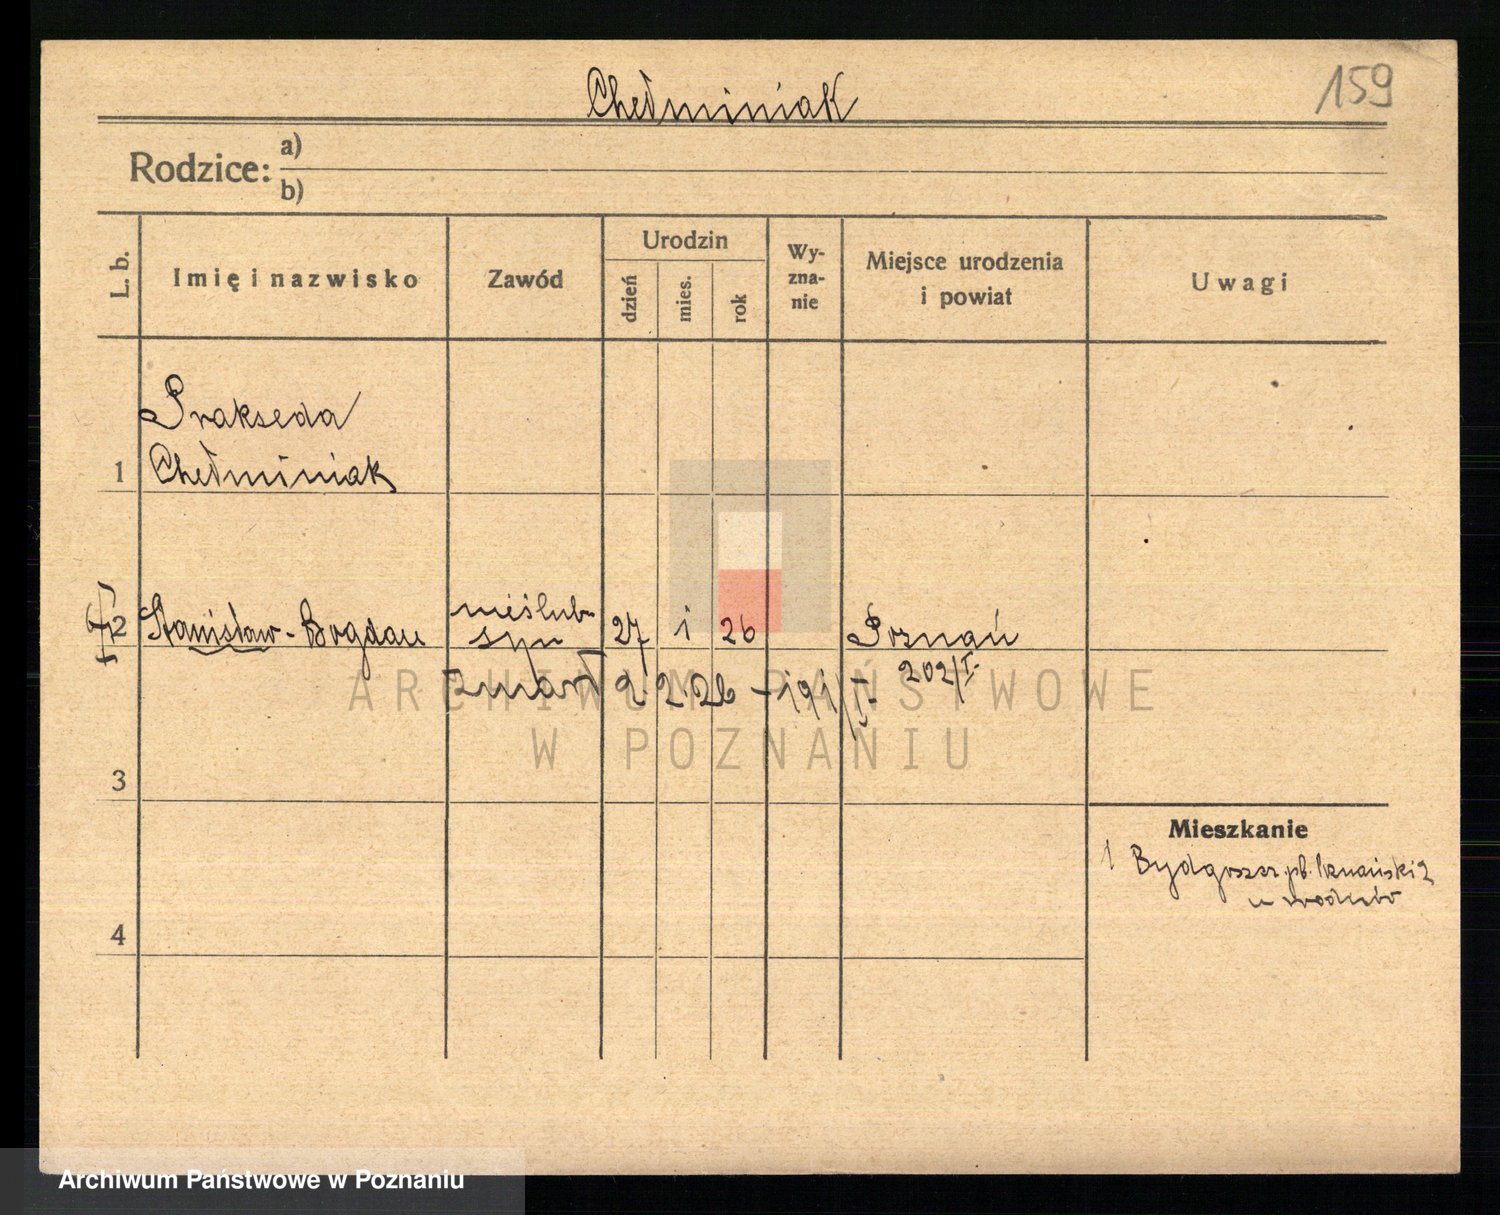 Chełminiak
159
Rodzice: a)
b)
L. b.
Imię i nazwisko
Zawód
Urodzin
dzień
mies.
rok
Wy-
zna-
nie
Miejsce urodzenia
i powiat
Uwagi
Prakseda
1 Chełminiak
2 Stanisław-Bogdan nieślub- syn 27 i 26 Poznań
202/I.
zmarł 2. 2. 26 - 191/II.
3
Mieszkanie
1 Bydgoszcz. pl. Poznański 2
u
4
ARCHIWUM PAŃSTWOWE
W POZNANIU
Archiwum Państwowe w Poznaniu